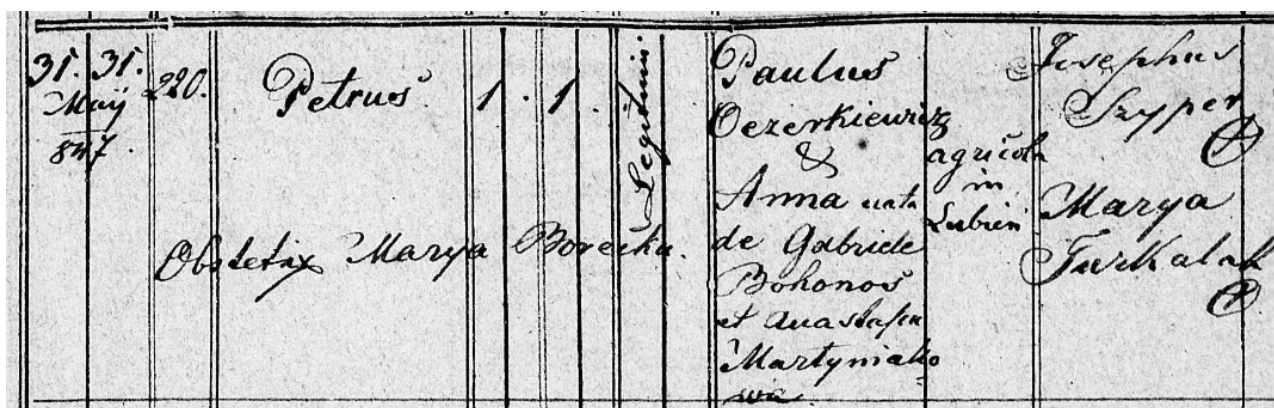 31. 31.
Maÿ
847
220.
Petrus
1. 1.
Legitimi
Obstetrix Marya Borecka.
Paulus
&
Anna nata
de Gabriele
Bohonos
et Anastasia
Martyniako
wa.
agricola
in
Lubien
Josephus
Szyper
Marya
Turkalak